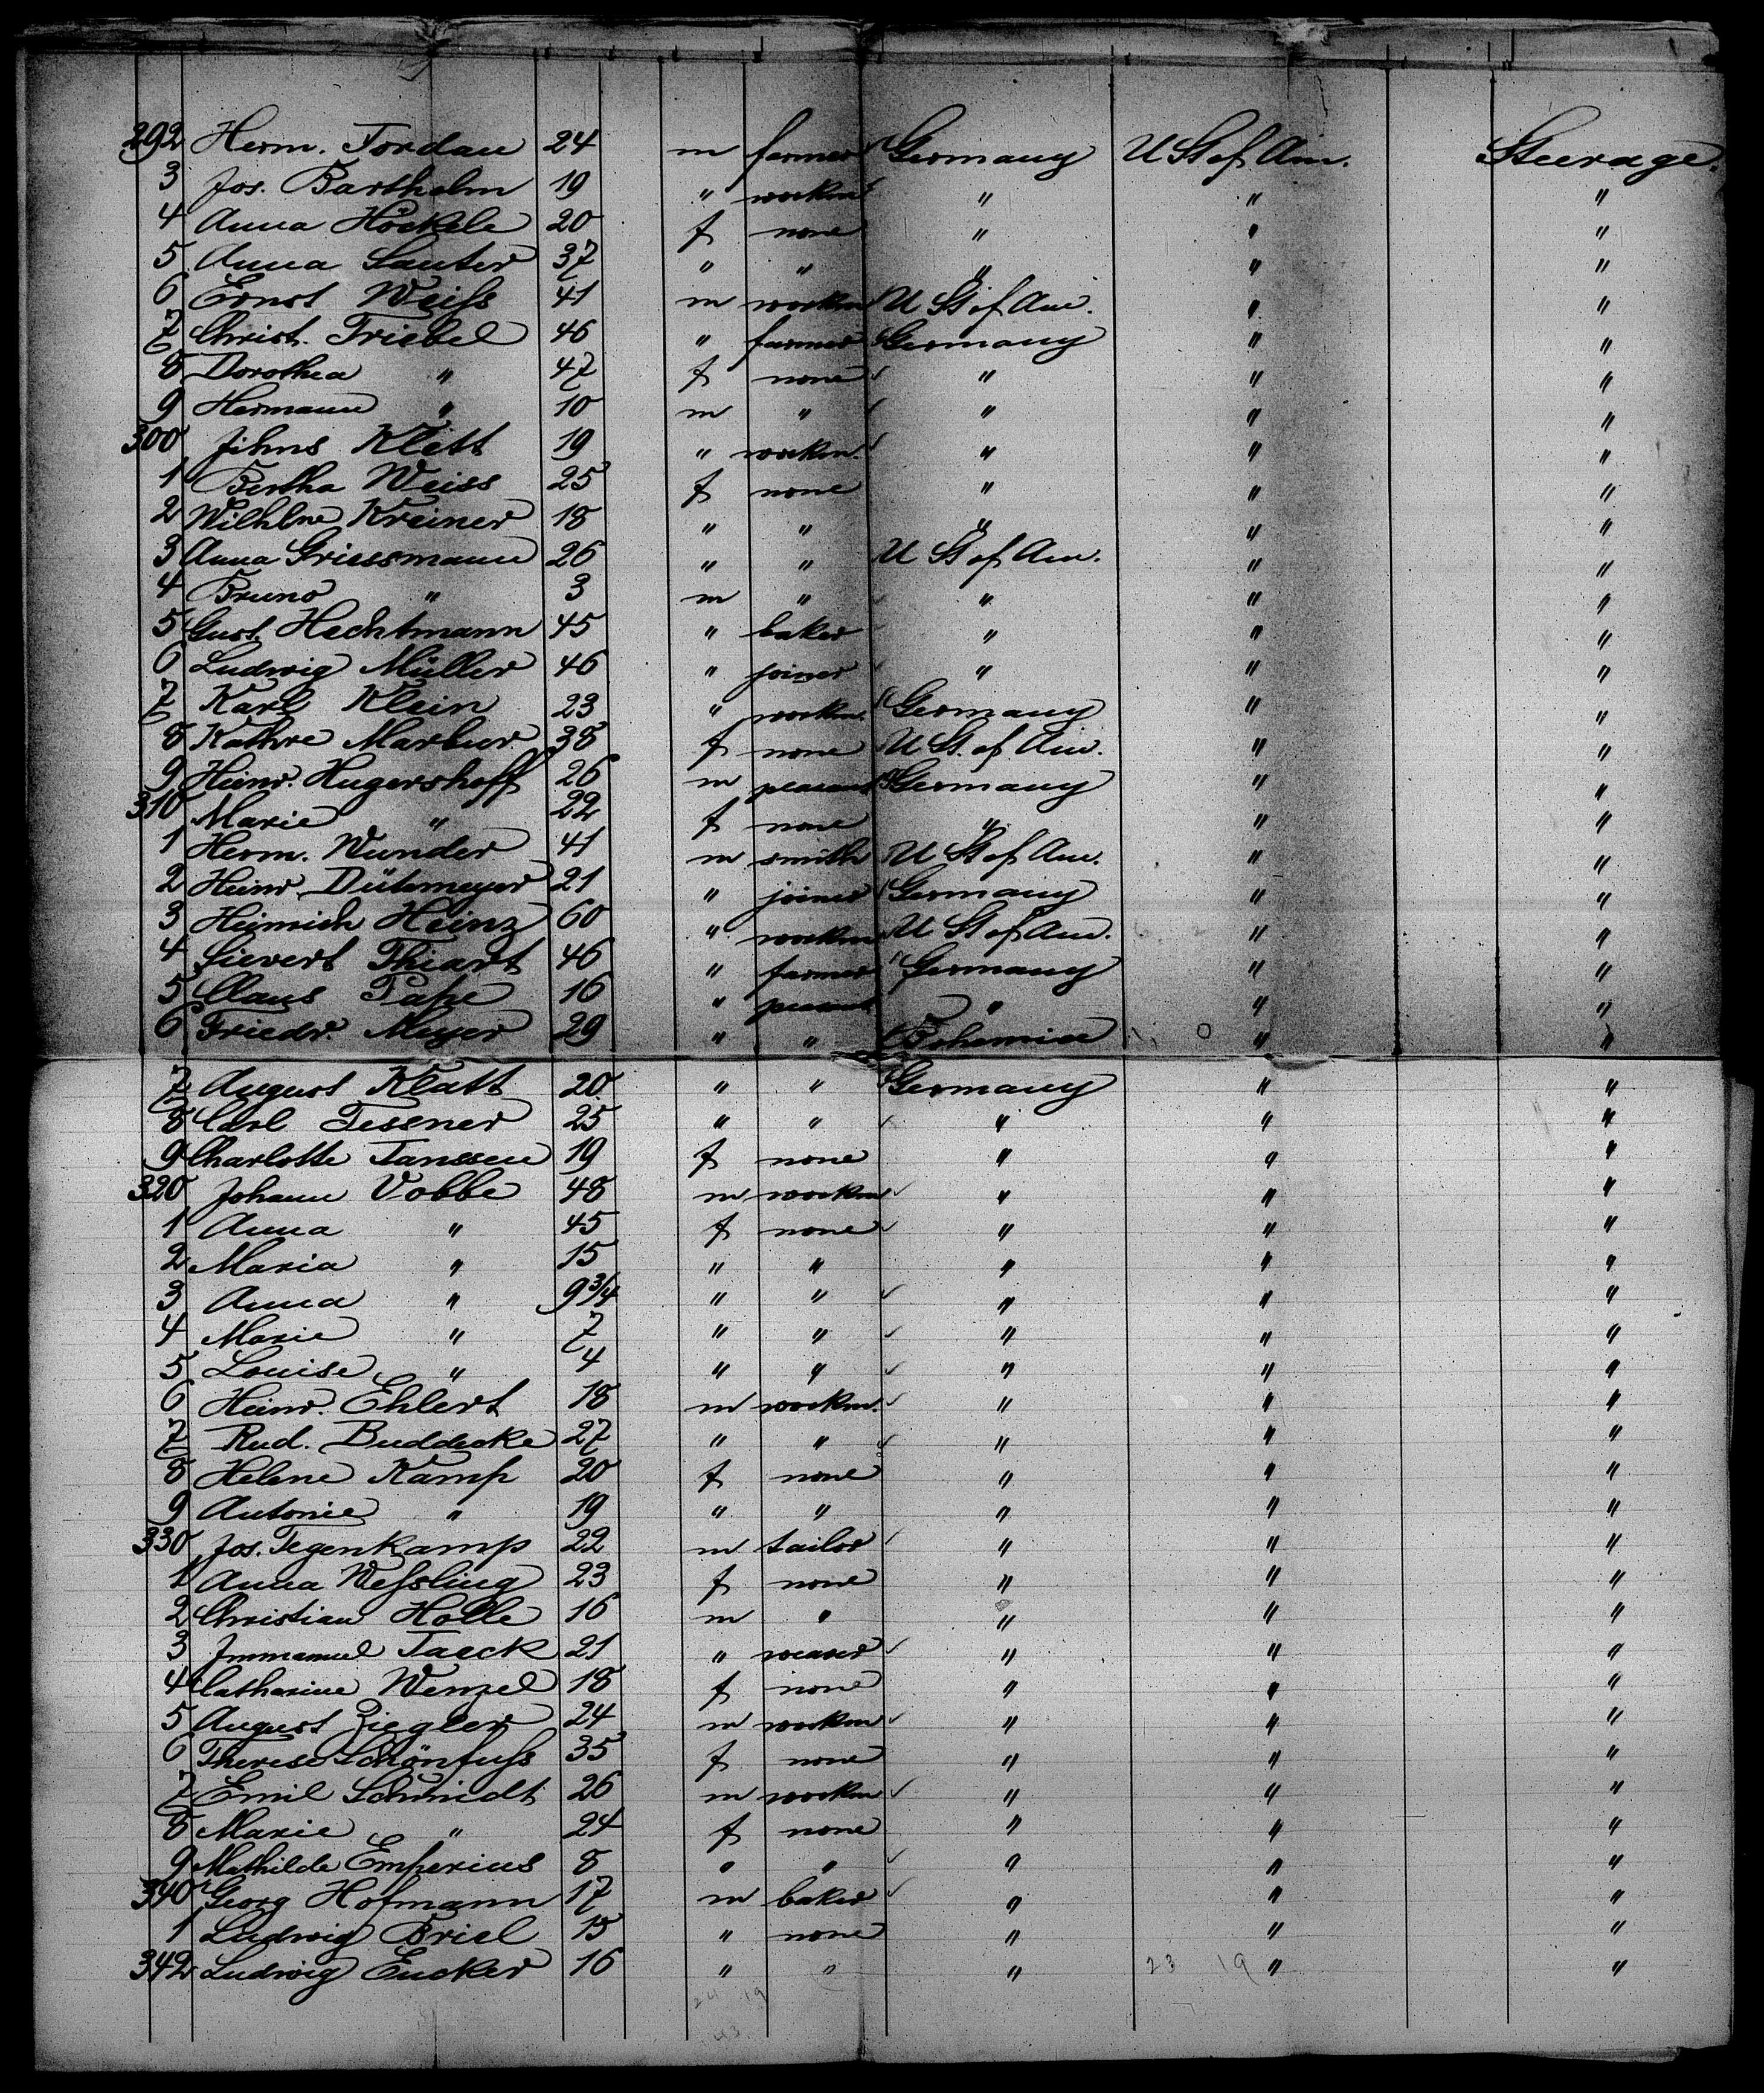 292 Herm. Jordan 24 m farmer Germany U St of Am. Steerage.
3 Jos. Barthelm 19 " workm " " "
4 Anna Höckele 20 f none " " "
5 Anna Sauter 37 " " " " "
6 Ernst Weiss 41 m workm U St of Am. " "
7 Christ. Triebel 46 " farmer Germany " "
8 Dorothea " 47 f none " " "
9 Hermann " 10 m " " " "
300 Klett 19 " workm. " " "
1 Bertha Weiss 25 f none " " "
2 Wilhlne Kreiner 18 " " " " "
3 Anna Griessmann 26 " " U St of Am. " "
4 Bruno " 3 m " " " "
5 Gust. Hechtmann 45 " baker " " "
6 Ludwig Müller 46 " joiner " " "
7 Karl Klein 23 " workm. Germany " "
8 Kathre Marbur 38 f none U St. of Am. " "
9 Heinr. Hugershoff 26 m peasant Germany " "
310 Marie " 22 f none " " "
1 Herm. Wunder 41 m smith U St of Am. " "
2 Heinr. Dütemeyer 21 " joiner Germany " "
3 Heinrich Heinz 60 " workm U St of Am. " "
4 Sievert Thiart 46 " farmer Germany " "
5 Claus Pape 16 " peasant " " "
6 Friedr. Meyer 29 " " Bohemia " "
7 August Klatt 20 " " Germany " "
8 Carl Tessner 25 " " " " "
9 Charlotte Janssen 19 f none " " "
320 Johann Vobbe 48 m workm " " "
1 Anna " 45 f none " " "
2 Maria " 15 " " " " "
3 Anna " 9 3/4 " " " " "
4 Marie " 7 " " " " "
5 Louise " 4 " " " " "
6 Heinr. Ehlert 18 m workm. " " "
7 Rud. Buddecke 27 " " " " "
8 Helene Kamp 20 f none " " "
9 Antonie " 19 " " " " "
330 Jos. Tegenkamp 22 m tailor " " "
1 Anna Wessling 23 f none " " "
2 Christian Holle 16 m " " " "
3 Immanuel Taeck 21 " weaver " " "
4 Catharine Wenzel 18 f none " " "
5 August Ziegler 24 m workm " " "
6 Therese Schönfuss 35 f none " " "
7 Emil Schmidt 26 m workm " " "
8 Marie " 24 f none " " "
9 Mathilde Emperius 8 " " " " "
340 Georg Hofmann 17 m baker " " "
1 Ludwig Briel 15 " none " " "
342 Ludwig Eucker 16 " " " 23 19 " "
24 19
43